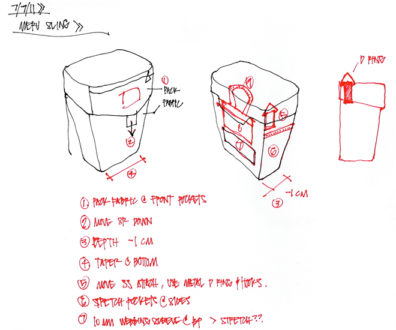 7/7/11 >>
MERU SLING >>
D RING
①
PACK
FABRIC
②
④
⑤
⑥
③
~1 CM
① PACK FABRIC @ FRONT POCKETS
② MOVE SR DOWN
③ DEPTH ~1 CM
④ TAPER @ BOTTOM
⑤ MOVE SS ATTACH, USE METAL D RING & HOOKS.
⑥ STRETCH POCKETS @ SIDES
⑦ 10 MM WEBBING @ BP > STRETCH??